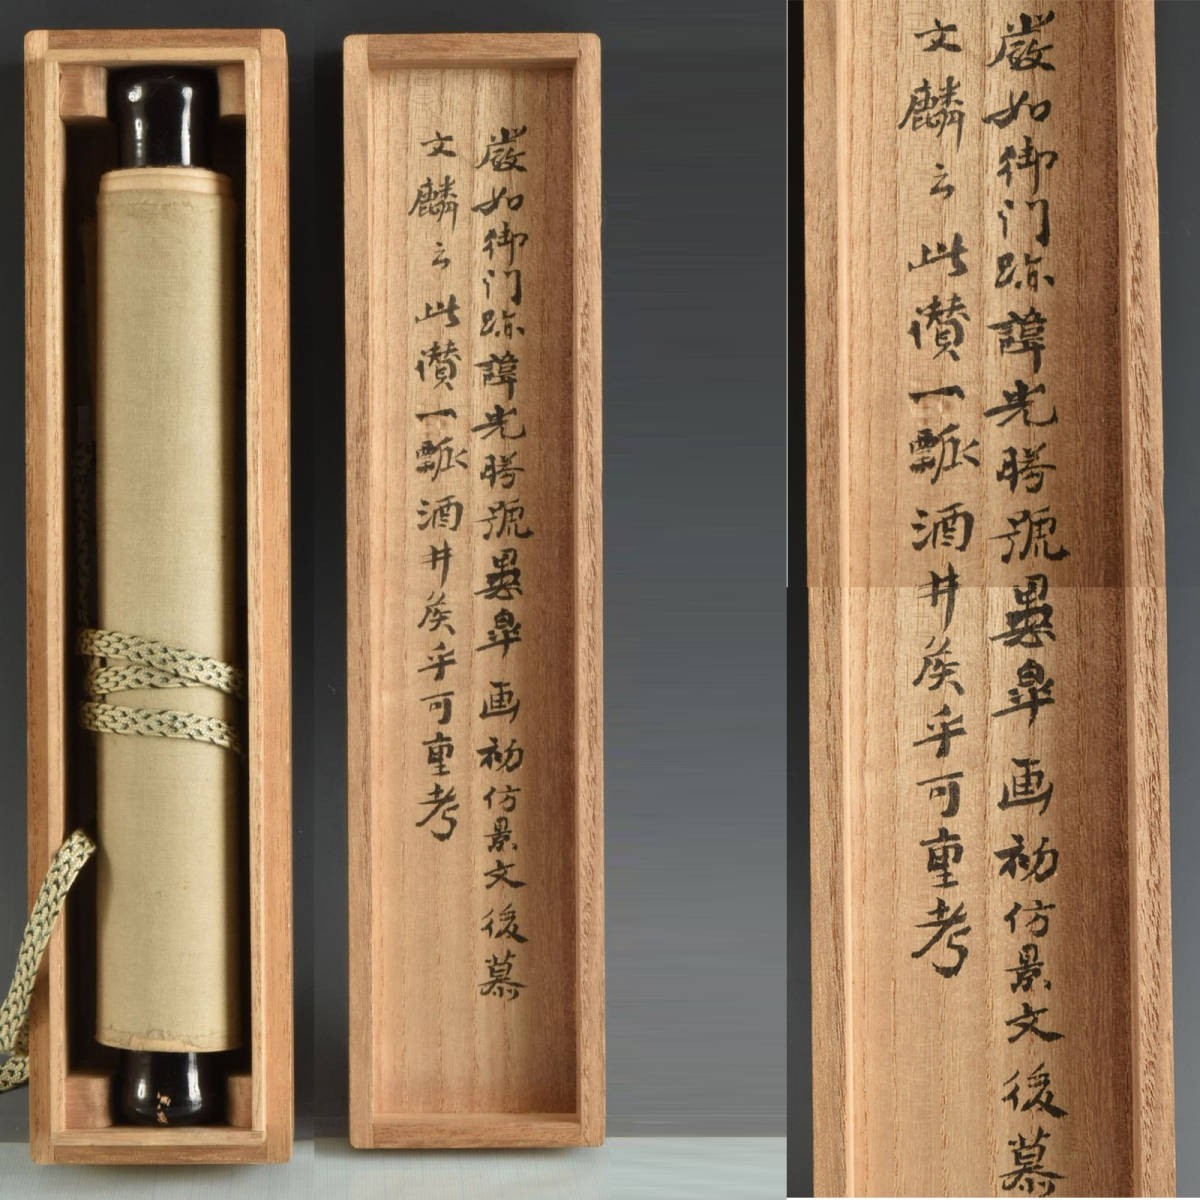 嚴如御门跡諱光勝號愚皐画初仿景文後慕
文麟云此讚一瓢酒井矦乎可重考
嚴如御门跡諱光勝號愚皐画初仿景文後慕
文麟云此讚一瓢酒井矦乎可重考